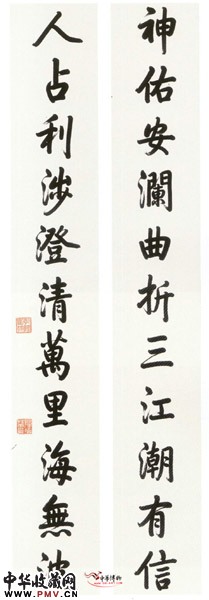 神佑安瀾曲折三江潮有信
人占利涉澄清萬里海無波
中华收藏网
www.PMV.cn